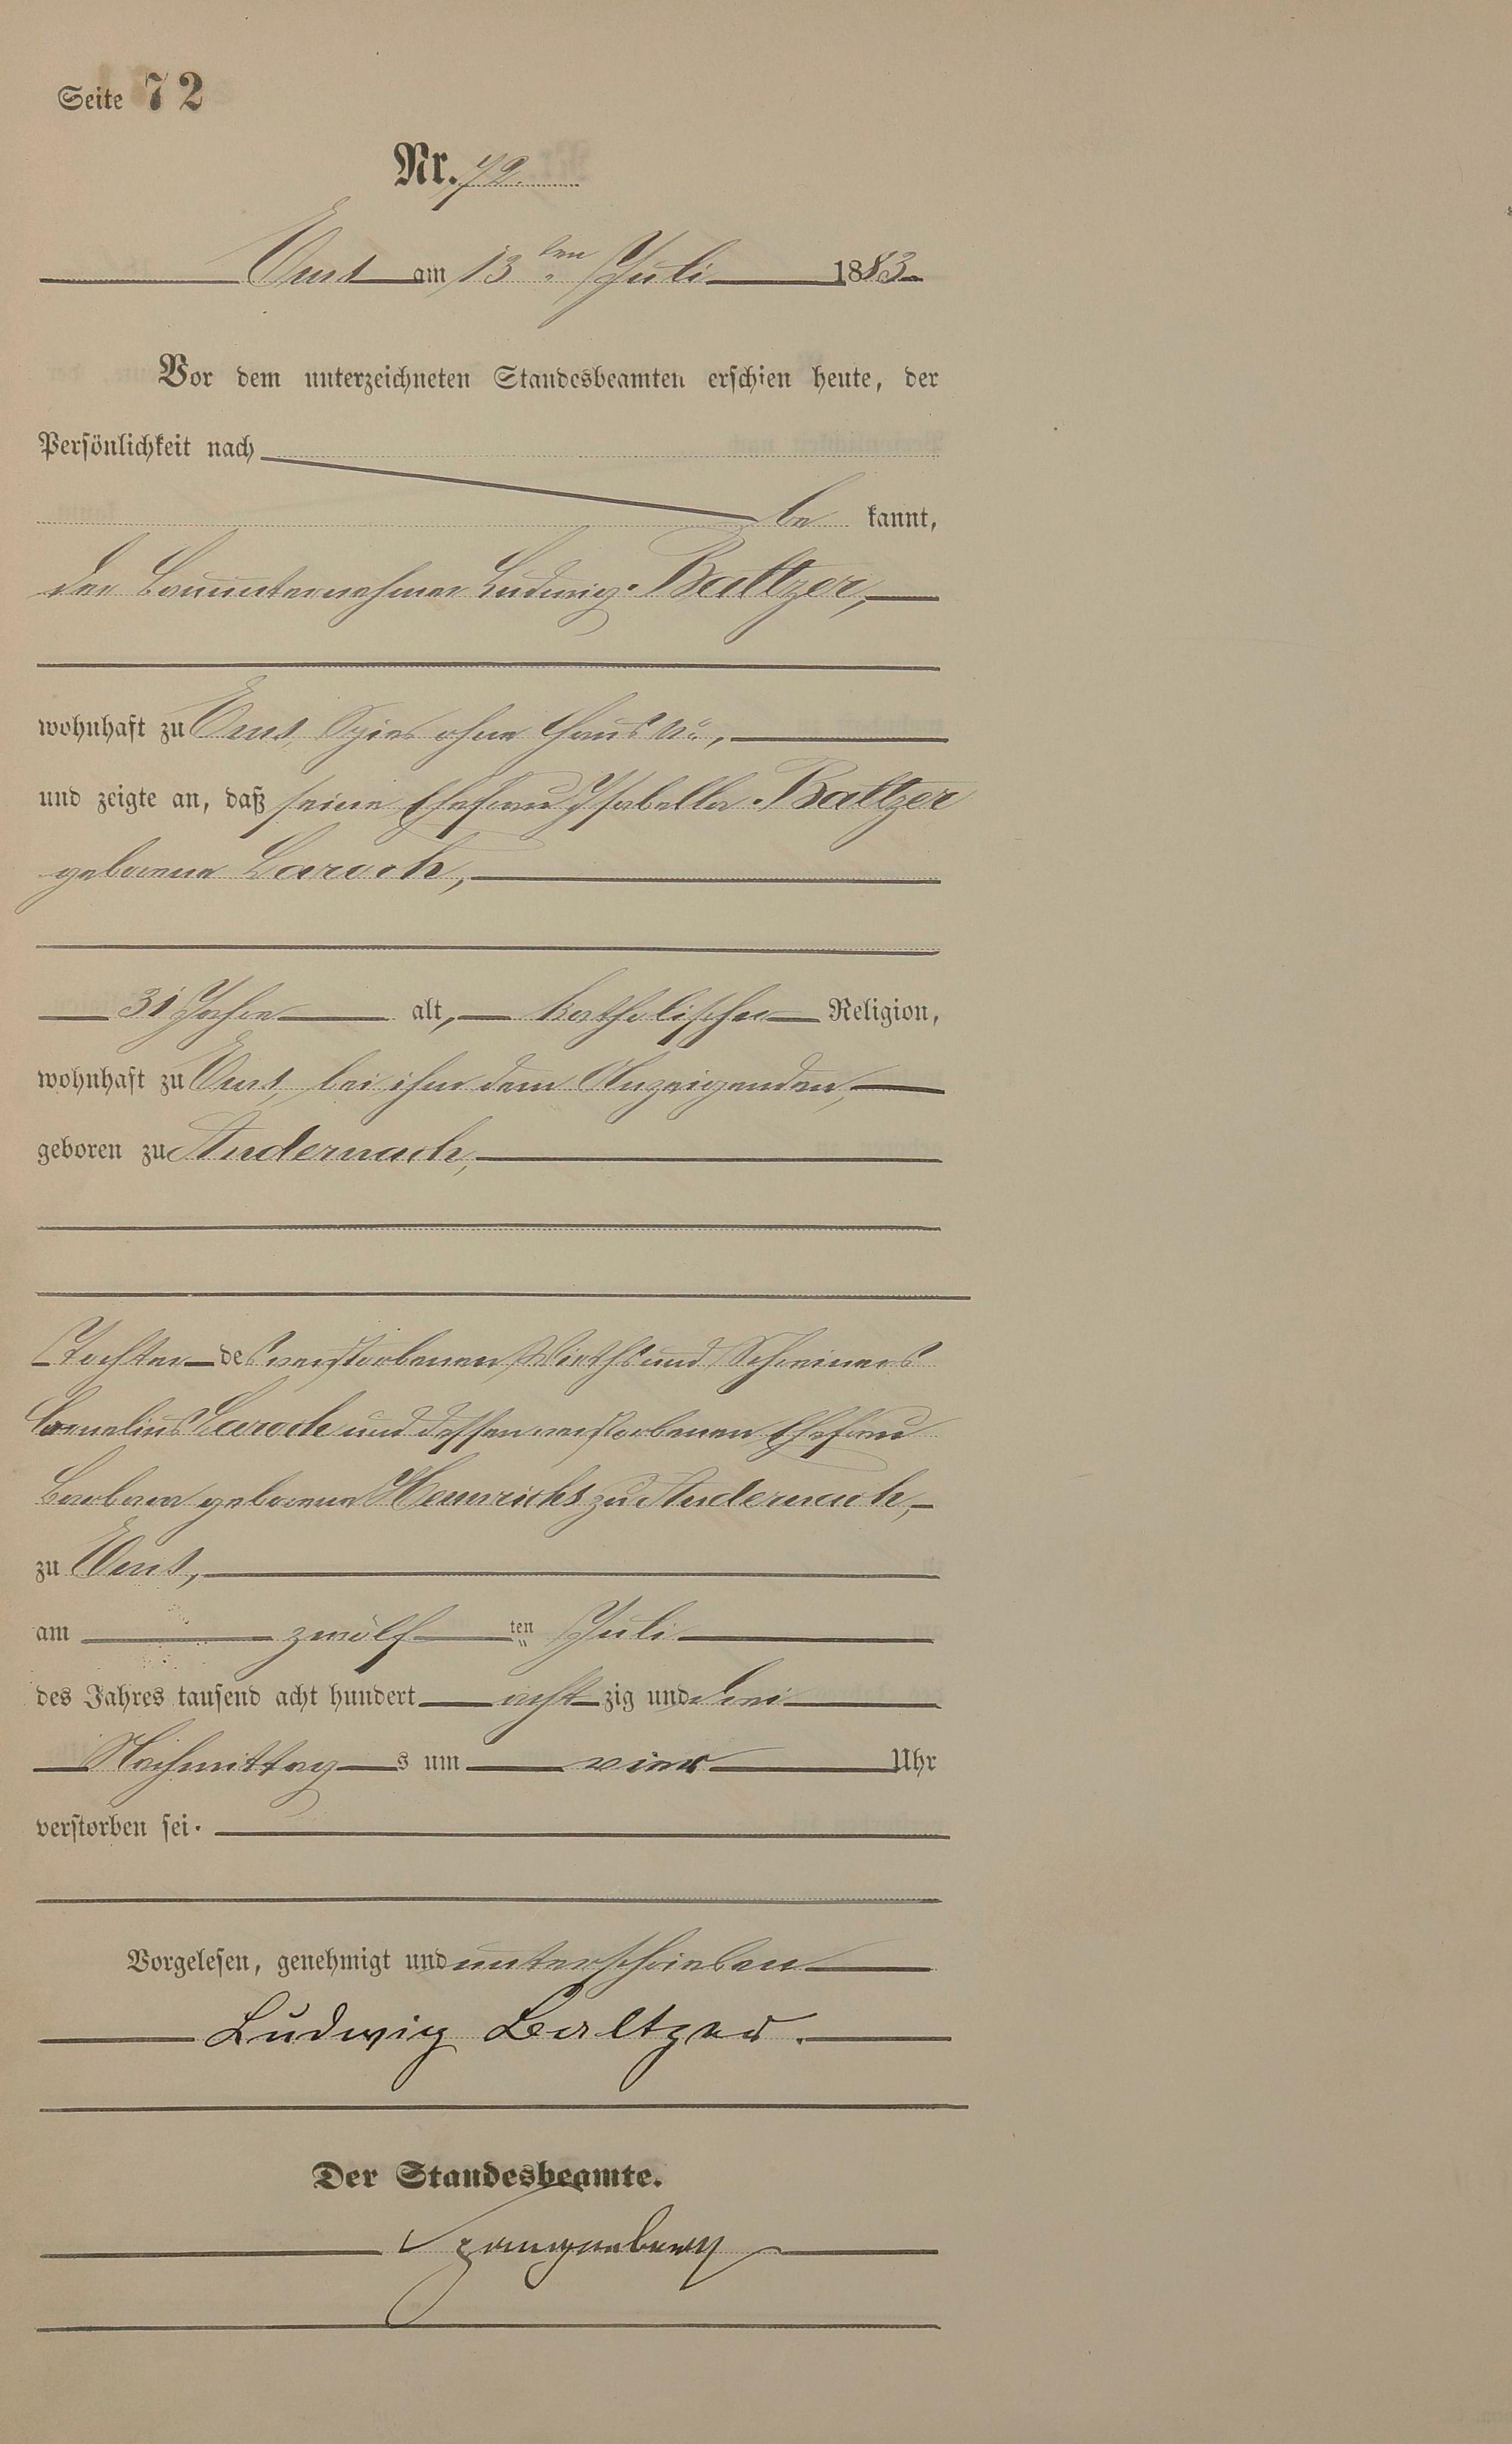 Seite 72
Nr. 72.
Ems am 13ten Juli 1883
Vor dem unterzeichneten Standesbeamten erschien heute, der
Persönlichkeit nach
be kannt,
der Bauunternehmer Ludwig Baltzer,
wohnhaft zu Ems, Spies ohne Haus No,
und zeigte an, daß seine Ehefrau Isabella Baltzer
geborene Laroch,
31 Jahre alt, katholischer Religion,
wohnhaft zu Ems, bei ihm dem Anzeigenden,
geboren zu Andernach,
Tochter des verstorbenen Wirths und Schreiners
Cornelius Laroch und dessen verstorbenen Ehefrau
Barbara geborene Hennrichs zu Andernach,
zu Ems,
am zwölf ten Juli
des Jahres tausend acht hundert acht zig und drei
Nachmittag s um vier Uhr
verstorben sei.
Vorgelesen, genehmigt und unterschrieben
Ludwig Baltzer.
Der Standesbeamte.
Spangenberg